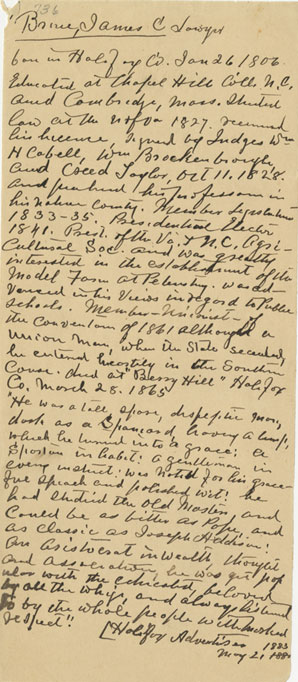 736
Bruce, James C Lawyer
born in Halifax Co. Jan 26 1806.
Educated at Chapel Hill Coll. N.C.
and Cambridge, Mass. Studied
law at the U of Va 1827. received
his license, signed by Judges Wm
H Cabell, Wm Brockenbrough,
and Creed Taylor, Oct 11, 1828.
and practiced his profession in
his native County. Member Legislature
1833-35. Presidential Elector
1841. Prest. of the Va. & N.C. Agri-
cultural Soc. and was greatly
interested in the establishment of the
Model Farm at Petersburg. was ad-
vanced in his views in regard to Public
schools. Member-Unionist- of
the Convention of 1861 although a
Union Man, when the State seceded,
he entered heartily in the Southern
Cause. died at "Berry Hill" Halifax
Co. March 28. 1865
"He was a tall, spare, dispeptic man,
dark as a Spaniard, having a limp,
which he turned into a grace; a
Spartan in habit; a gentleman in
every instinct; was noted for his grace-
ful speach and polished wit; he
had studied the old Masters, and
could be as bitter as Pope, and
as classic as Joseph Addison;
an Aristocrat in wealth, thought
and association, he was yet pop
ular with the educated, beloved
by all the whigs, and always listened
to by the whole people with marked
respect".
[Halifax Advertiser 1883
May 21,